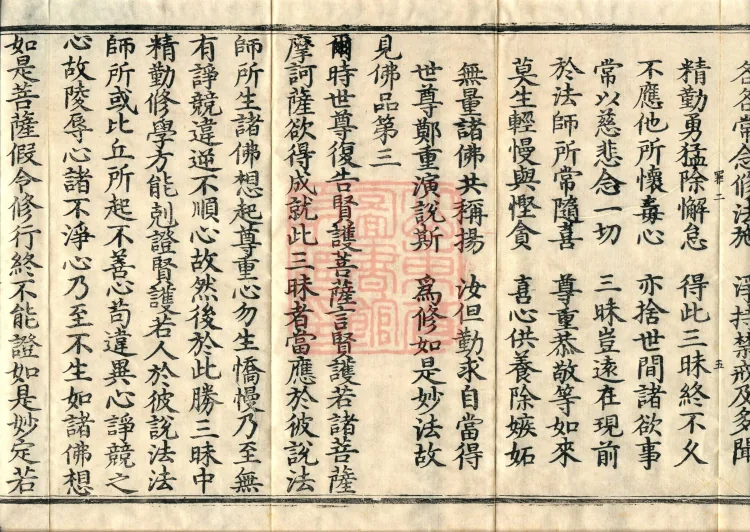 各各常念修法施　淨持禁戒及多聞
精勤勇猛除懈怠　得此三昧終不久
不應他所懷毒心　亦捨世間諸欲事
常以慈悲念一切　三昧豈遠在現前
於法師所常隨喜　尊重恭敬等如來
莫生輕慢與慳貪　喜心供養除嫉妬
無量諸佛共稱揚　汝但勤求自當得
世尊鄭重演說斯　爲修如是妙法故
見佛品第三
爾時世尊復告賢護菩薩言賢護若諸菩薩
摩訶薩欲得成就此三昧者當應於彼說法
師所生諸佛想起尊重心勿生憍慢乃至無
有諍競違逆不順心故然後於此勝三昧中
精勤修學方能剋證賢護若人於彼說法法
師所或比丘所起不善心苟違異心諍競之
心故陵辱心諸不淨心乃至不生如諸佛想
如是菩薩假令修行終不能證如是妙定若